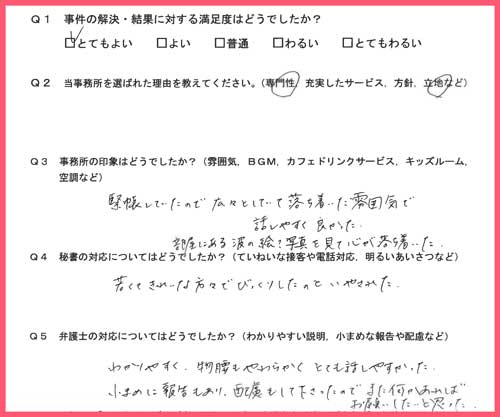 Q1 事件の解決・結果に対する満足度はどうでしたか？
□とてもよい □よい □普通 □わるい □とてもわるい
Q2 当事務所を選ばれた理由を教えてください。（専門性，充実したサービス，方針，立地など）
Q3 事務所の印象はどうでしたか？（雰囲気，ＢＧＭ，カフェドリンクサービス，キッズルーム，
空調など）
緊帳していたので広々としていて落ち着いた雰囲気で
話しやすく良かた.
部屋にある波の絵と写真を見て心が落ち着いた.
Q4 秘書の対応についてはどうでしたか？（ていねいな接客や電話対応，明るいあいさつなど）
若くてきれいな方々でびっくりしたのといやされた.
Q5 弁護士の対応についてはどうでしたか？（わかりやすい説明，小まめな報告や配慮など）
わかりやすく、物腰もやわらかくとても話しやすかった.
小まめに報告もあり、配慮もして下さったのでまた何かあれば
お願いしたいと思った.